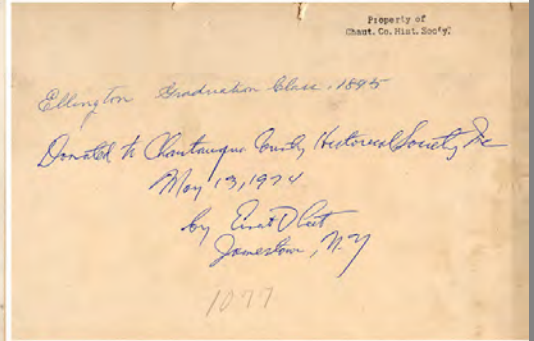 Property of
Chaut. Co. Hist. Soc'y.
Ellington Graduation Class, 1895
Donated to Chautauqua County Historical Society Inc
May 13, 1974
by
Jamestown, N.Y
1077